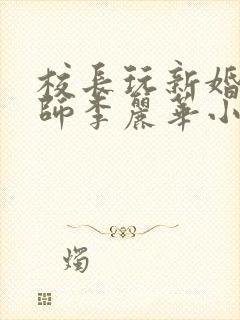 校長玩新婚
師李麗華小
燭